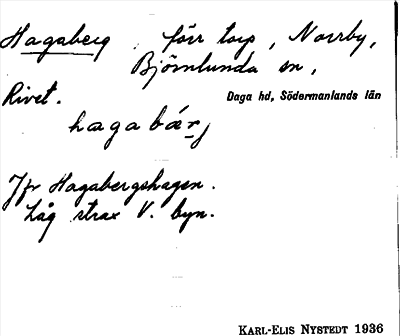 Hagaberg förr torp, Norrby,
Björnlunda sn,
Rivet. Daga hd, Södermanlands län
hagabärj
Jfr Hagabergshagen.
Låg strax V. byn.
KARL-ELIS NYSTEDT 1936